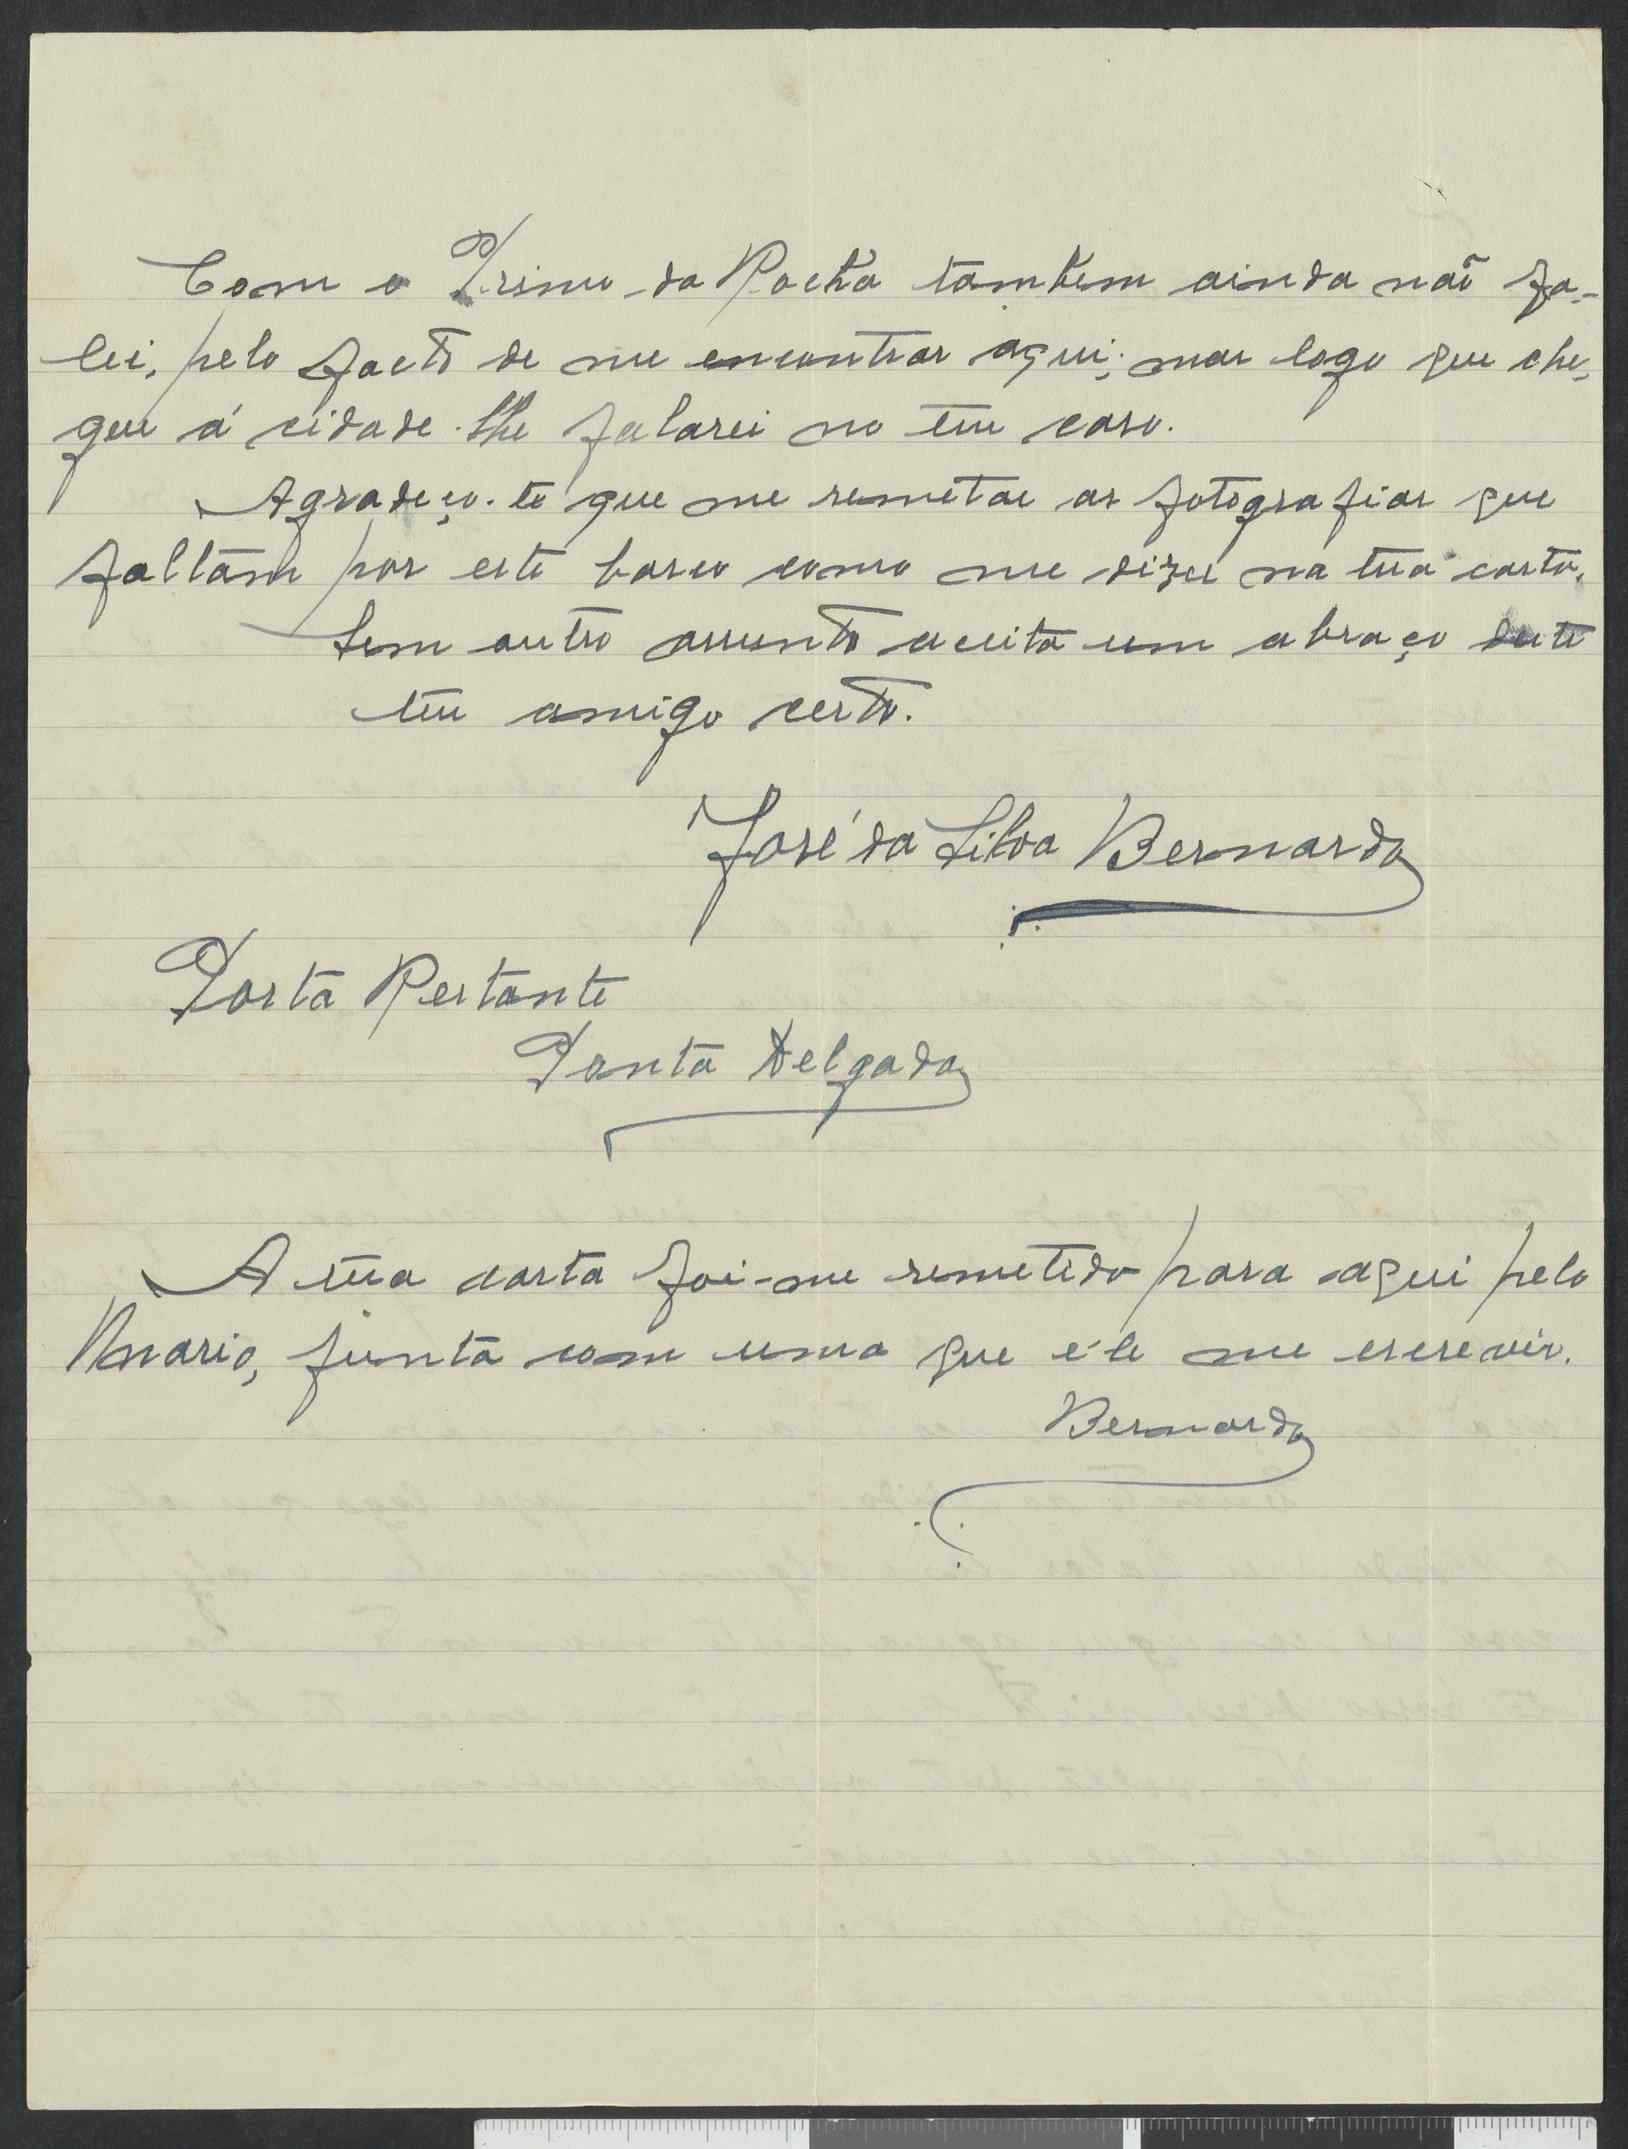 Com o Primo da Rocha tambem ainda não fa-
lei, pelo facto de me encontrar aqui; mas logo que che-
gue á cidade lhe falarei no teu caso.
Agradeço-te que me remetas as fotografias que
faltam por este barco como me dizes na tua carta.
Sem outro assunto aceita um abraço deste
teu amigo certo.
José da Silva Bernardo
Posta Restante
Ponta Delgada
A tua carta foi-me remetido para aqui pelo
Mario, junta com uma que êle me escreveu.
Bernardo